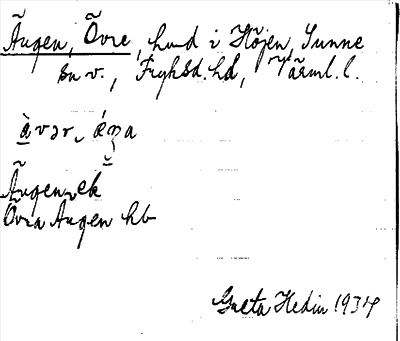 Ängen, Övre, hmd i Höjen, Sunne
sn v., Fryksd. hd, Värml. l.
àvər, ǽŋa
Ängen, ek
Övra Ängen hb
Greta Hedin 1934